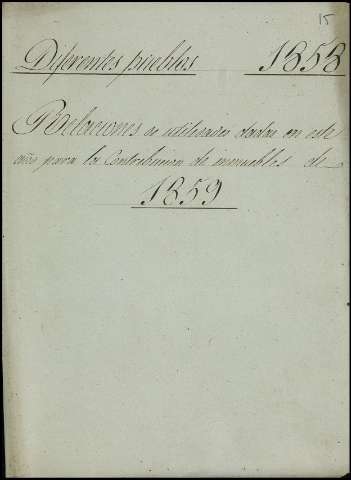 15
Diferentes pueblos 1858
Relaciones de utilidades dadas en este
año para la Contribucion de inmuebles de
1859